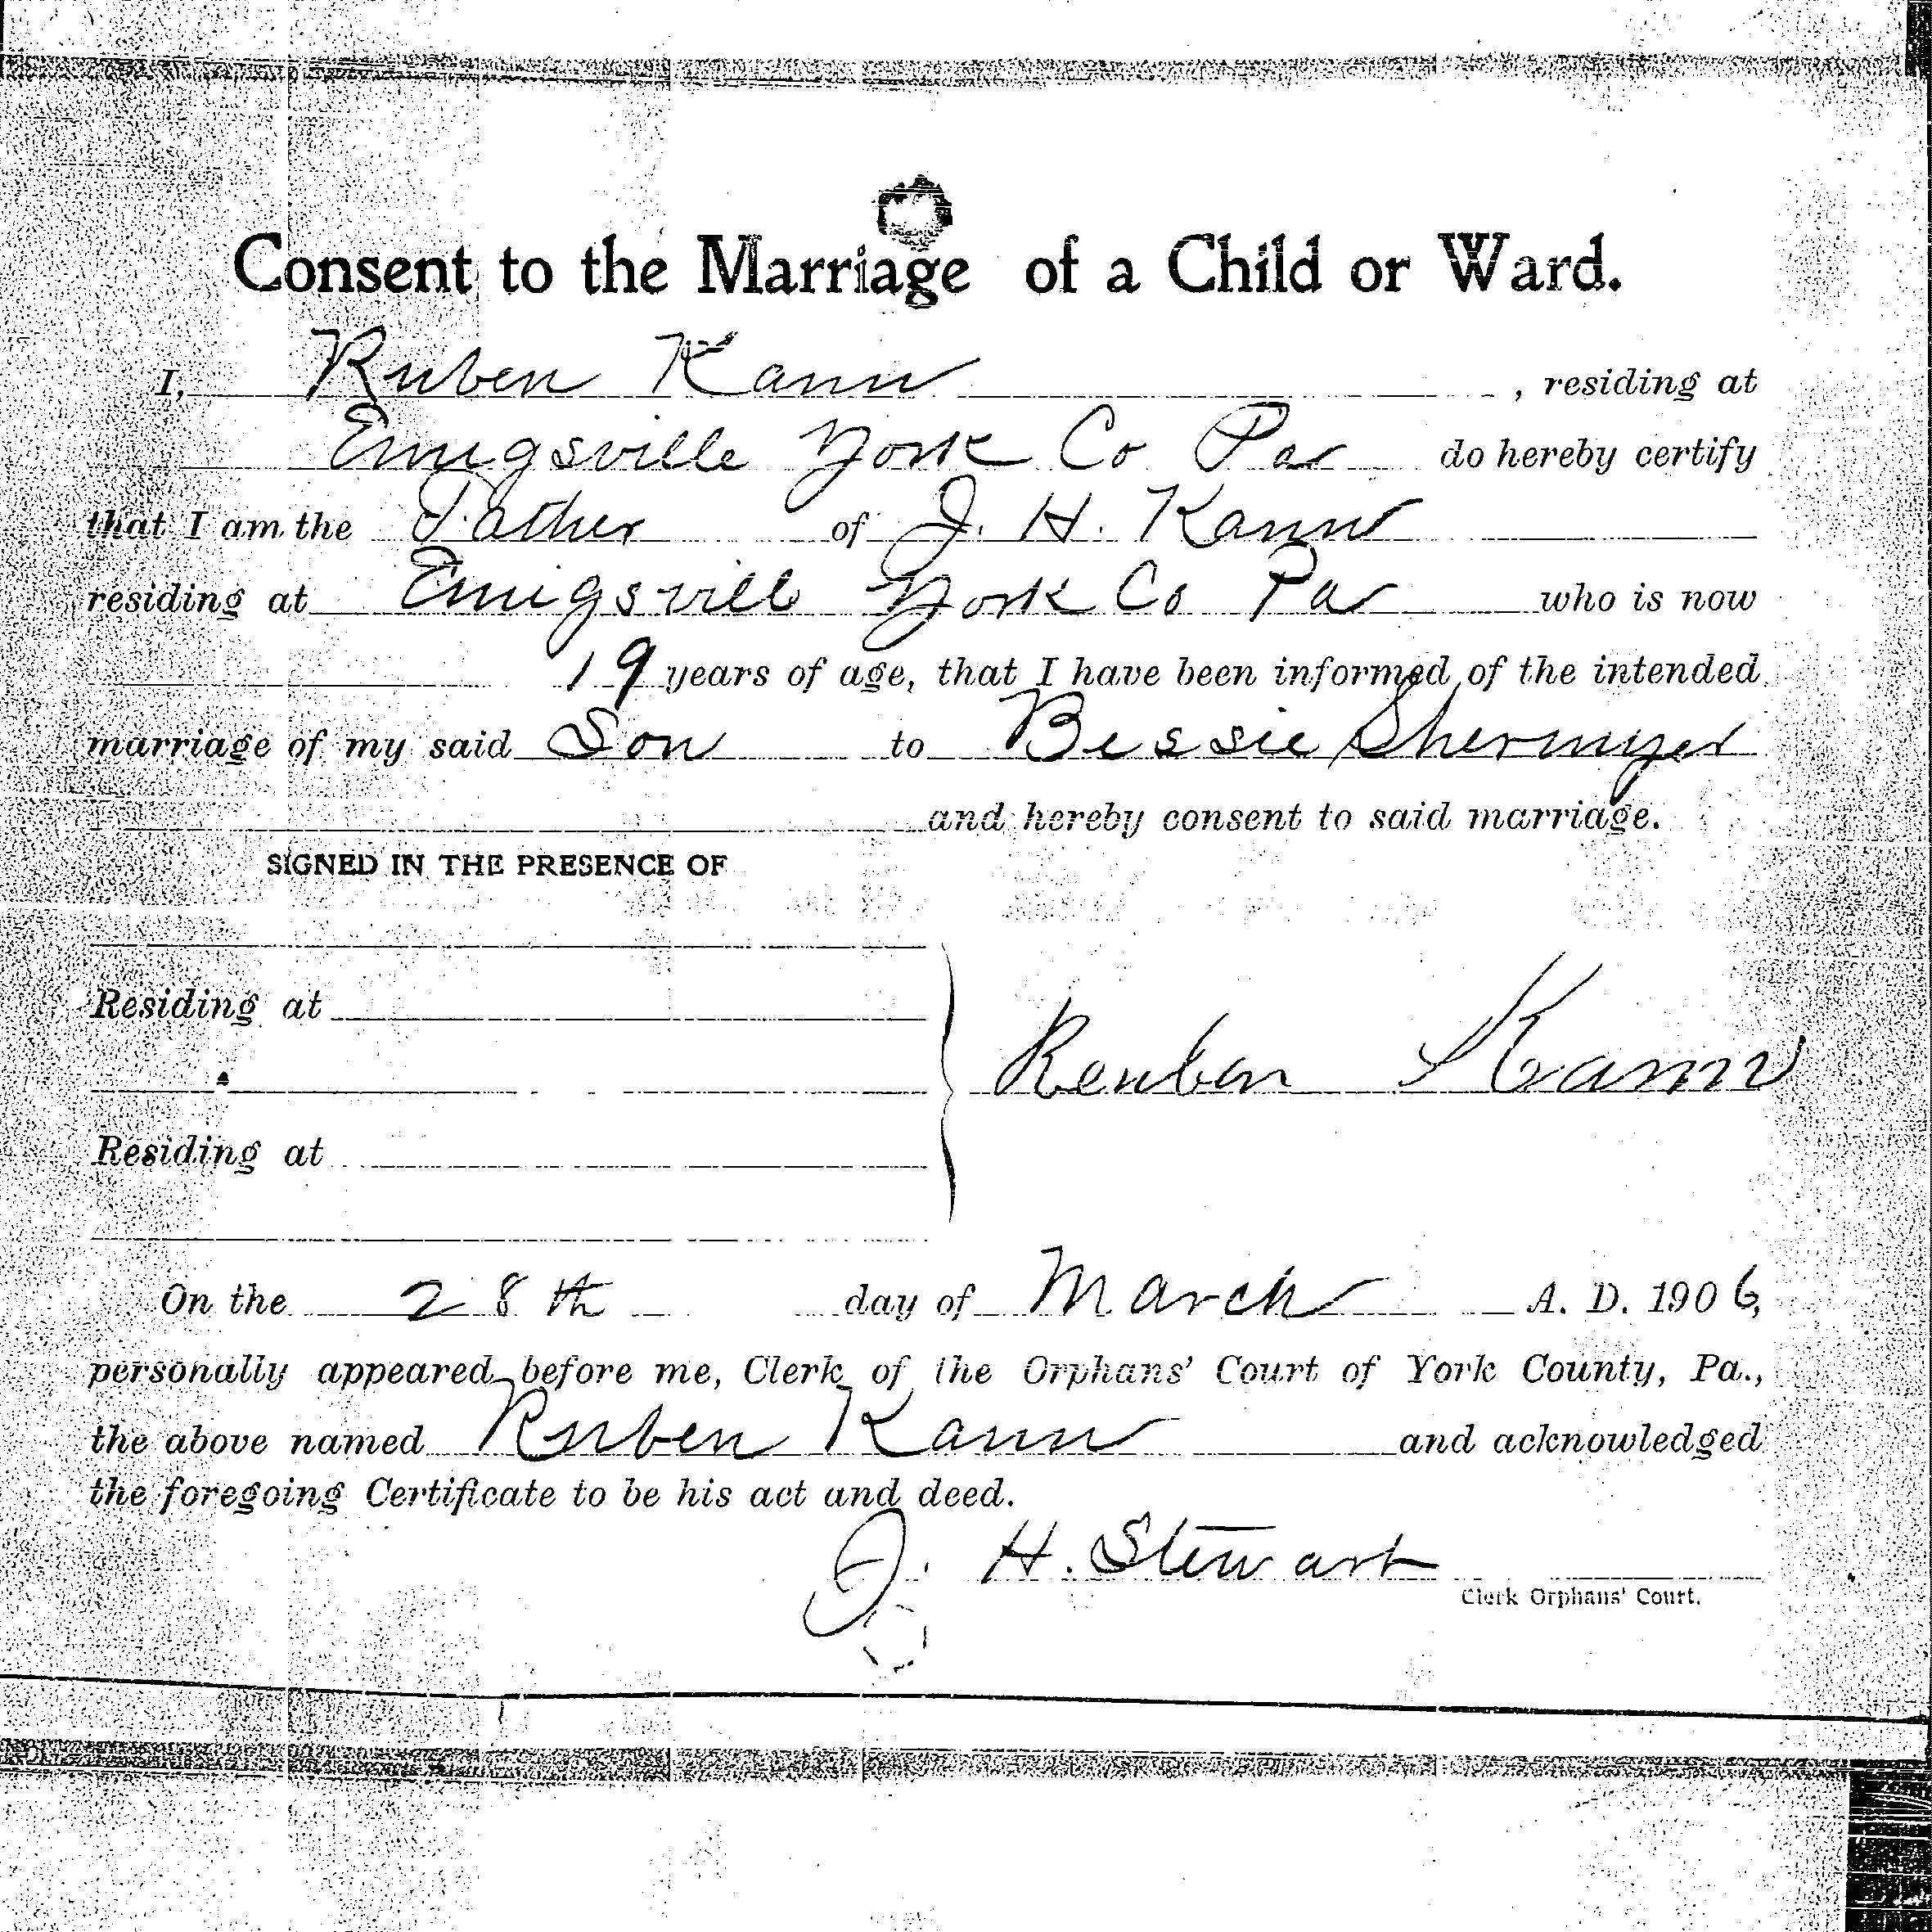 Consent to the Marriage of a Child or Ward.
I, Ruben Kann, residing at
Emigsville York Co Pa do hereby certify
that I am the Father of J. H. Kann
residing at Emigsvill York Co Pa who is now
19 years of age, that I have been informed of the intended
marriage of my said Son to Bessie Shermyer
and hereby consent to said marriage.
SIGNED IN THE PRESENCE OF
Residing at
Reuben Kann
Residing at
On the 28th day of March A. D. 1906,
personally appeared before me, Clerk of the Orphans' Court of York County, Pa.,
the above named Ruben Kann and acknowledged
the foregoing Certificate to be his act and deed.
J. H. Stewart
Clerk Orphans' Court.